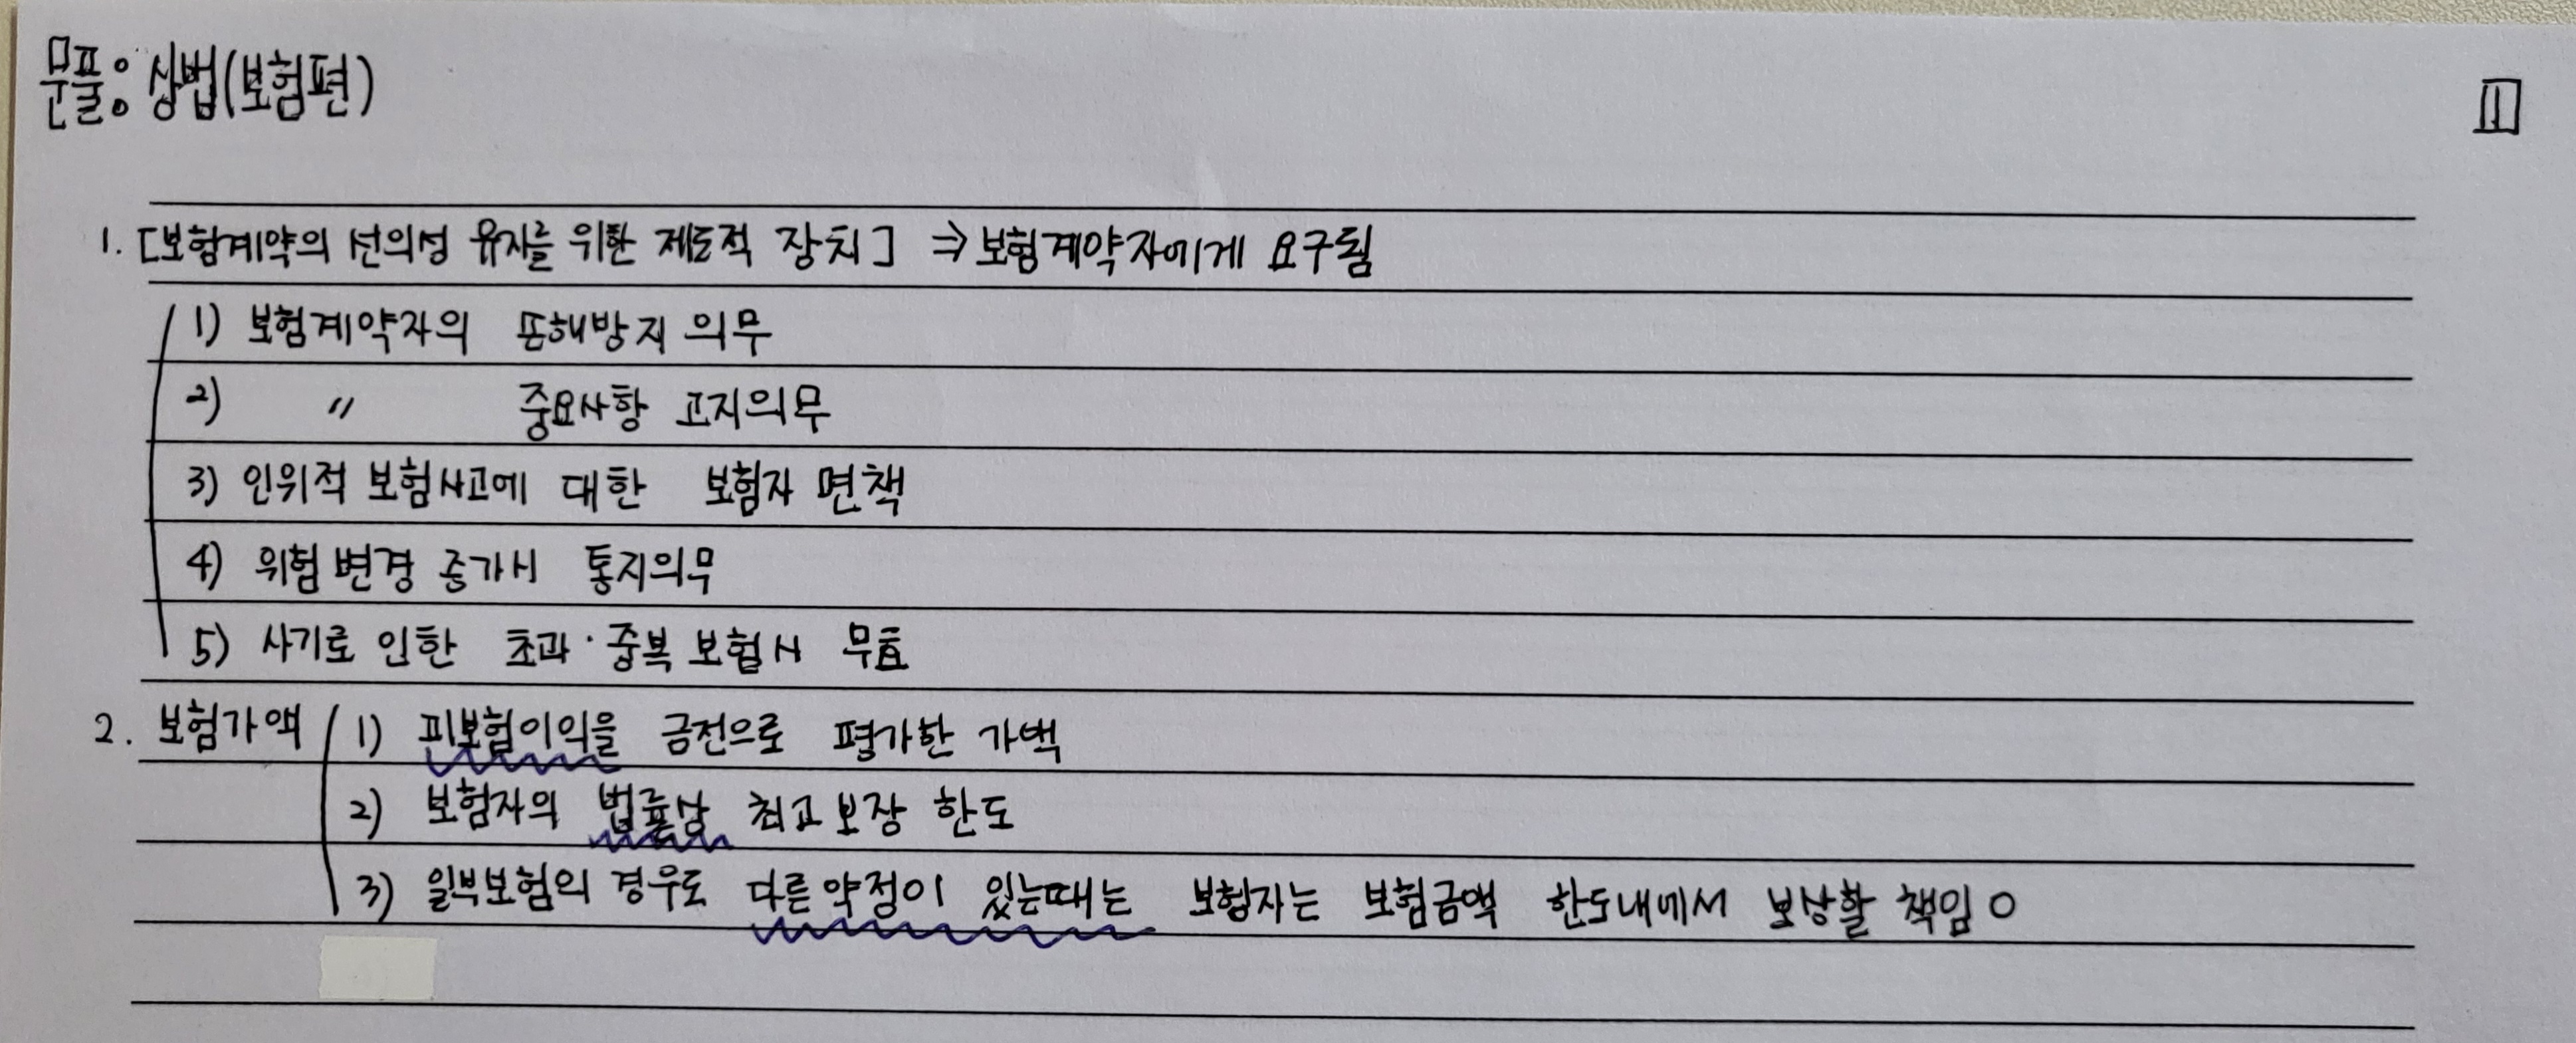 문풀: 상법(보험편)
1
1. [보험계약의 선의성 유지를 위한 제도적 장치] ⇒ 보험계약자에게 요구됨
1) 보험계약자의 손해방지 의무
2) 〃 중요사항 고지의무
3) 인위적 보험사고에 대한 보험자 면책
4) 위험변경 증가시 통지의무
5) 사기로 인한 초과·중복 보험시 무효
2. 보험가액 1) 피보험이익을 금전으로 평가한 가액
2) 보험자의 법률상 최고 보장 한도
3) 일부보험의 경우도 다른 약정이 있는때는 보험자는 보험금액 한도내에서 보상할 책임 O